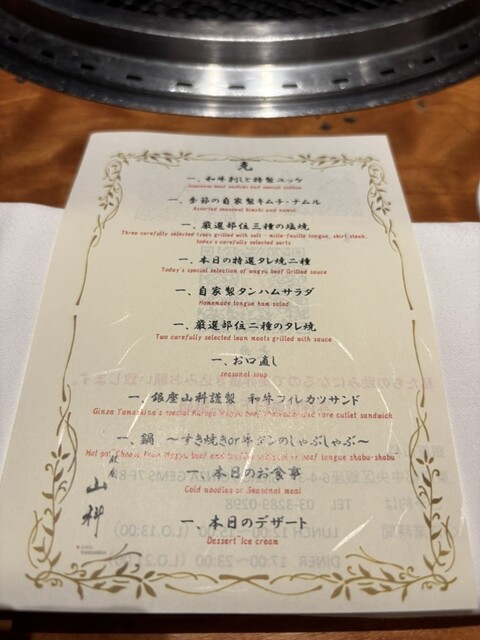 一、和牛刺しと特製ユッケ
一、季節の自家製キムチ・ナムル
Assorted seasonal kimchi and namul
一、厳選部位三種の塩焼
Three carefully selected types grilled with salt - mille-feuille tongue, skirt steak,
today's carefully selected parts
一、本日の特選タレ焼二種
Today's special selection of wagyu beef Grilled sauce
一、自家製タンハムサラダ
Homemade tongue ham salad
一、厳選部位二種のタレ焼
Two carefully selected lean meats grilled with sauce
一、お口直し
seasonal soup
一、銀座山科謹製 和牛フィレカツサンド
Ginza Yamashina's special Kuroge Wagyu beef rare cutlet sandwich
一、鍋 〜すき焼きor牛タンのしゃぶしゃぶ〜
Hot pot Choose from Wagyu beef or beef tongue shabu-shabu
一、本日のお食事
Cold noodles or Seasonal meal
一、本日のデザート
Dessert Ice cream
銀座
山科